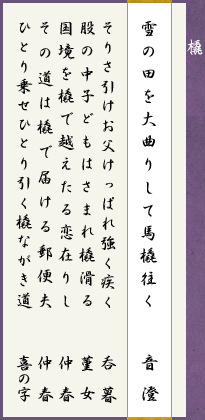 橇
雪の田を大曲りして馬橇往く 音澄
そりさ引けお父けっぱれ強く疾く 呑暮
股の中子どもはさまれ橇滑る 菫女
国境を橇で越えたる恋在りし 仲春
その道は橇で届ける郵便夫 仲春
ひとり乗せひとり引く橇ながき道 喜の字